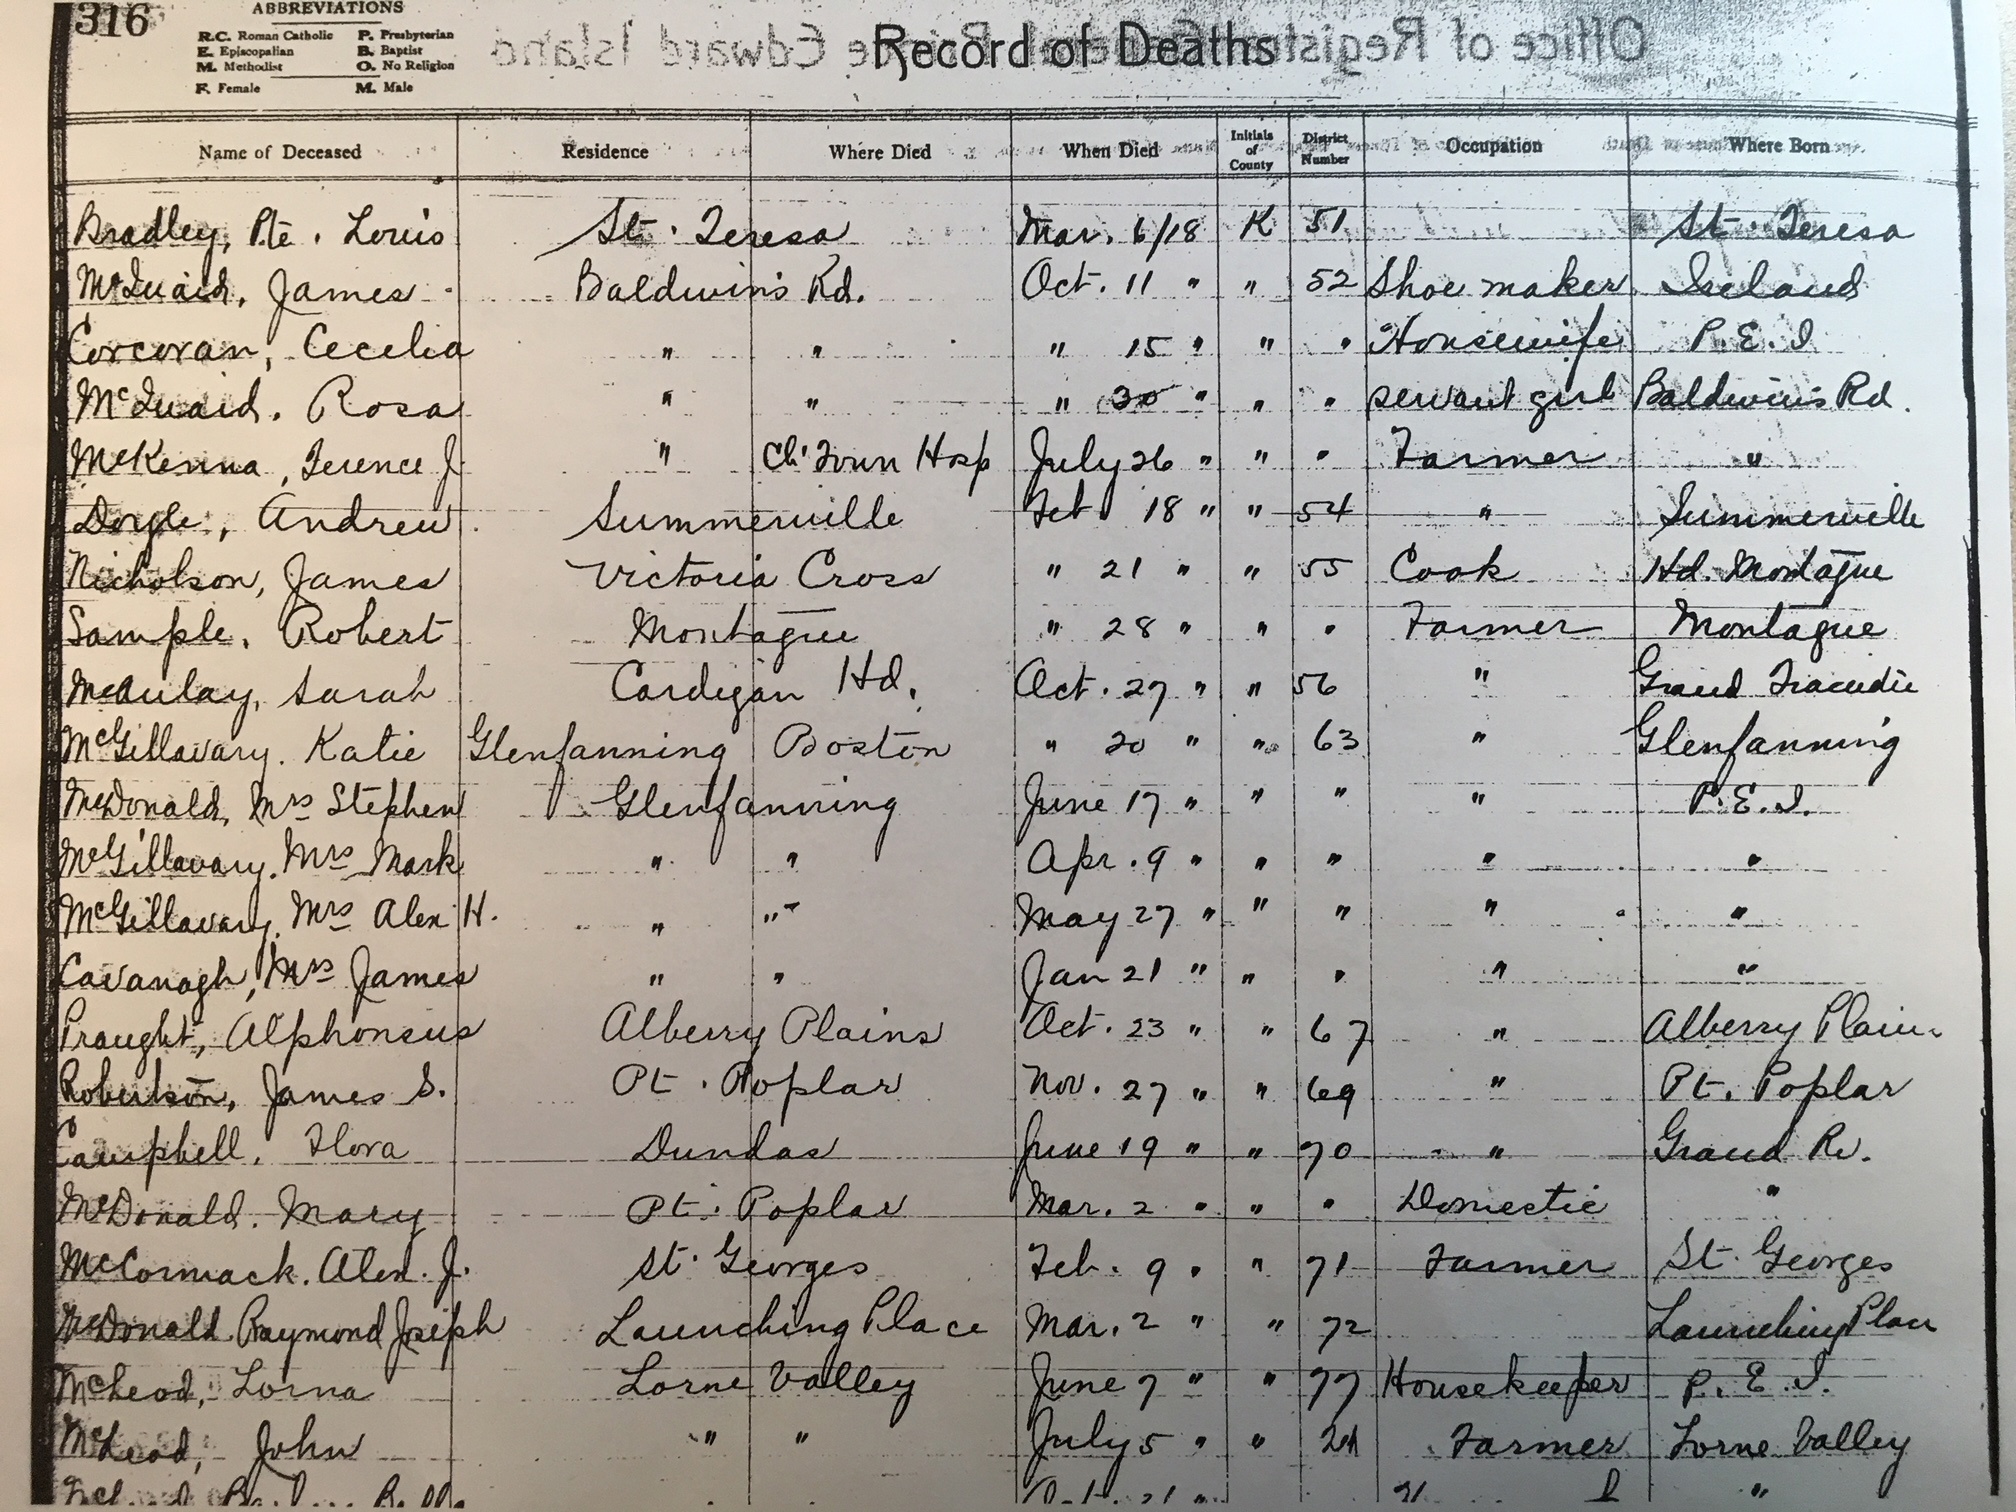 316
ABBREVIATIONS
R.C. Roman Catholic P. Presbyterian
E. Episcopalian B. Baptist
M. Methodist O. No Religion
F. Female M. Male
Record of Deaths
Office of Registrar Prince Edward Island
Name of Deceased Residence Where Died When Died Initials of County District Number Occupation Where Born
Bradley, Pte. Louis St. Teresa Mar. 6/18 K 51 St. Teresa
McQuaid, James Baldwin's Rd. Oct. 11 " " 52 Shoe maker Ireland
Corcoran, Cecilia " " " 15 " " " Housewife P.E.I
McQuaid, Rosa " " " 30 " " " servant girl Baldwin's Rd.
McKenna, Terence J. " Ch'Town Hosp July 26 " " " Farmer "
Doyle, Andrew Summerville Feb 18 " " 54 " Summerville
Nicholson, James Victoria Cross " 21 " " 55 Cook Hd. Montague
Sample, Robert Montague " 28 " " " Farmer Montague
McAulay, Sarah Cardigan Hd. Oct. 27 " " 56 " Grand Tracadie
McGillavary. Katie Glenfanning Boston " 20 " " 63 " Glenfanning
McDonald, Mrs Stephen Glenfanning June 17 " " " " P.E.I.
McGillavary, Mrs Mark " " Apr. 9 " " " " "
McGillavary, Mrs Alex H. " " May 27 " " " " "
Cavanagh, Mrs James " " Jan 21 " " " " "
Praught, Alphonsus Alberry Plains Oct. 23 " " 67 " Alberry Plains
Robertson, James S. Pt. Poplar Nov. 27 " " 69 " Pt. Poplar
Campbell, Flora Dundas June 19 " " 70 " Grand Rv.
McDonald. Mary Pt. Poplar Mar. 2 " " " Domestic "
McCormack. Alex. J. St. Georges Feb. 9 " " 71 Farmer St. Georges
McDonald Raymond Joseph Launching Place Mar. 2 " " 72 Launching Place
McLeod, Lorna Lorne Valley June 7 " " 77 Housekeeper P.E.I.
McLeod, John " " July 5 " " Farmer Lorne Valley